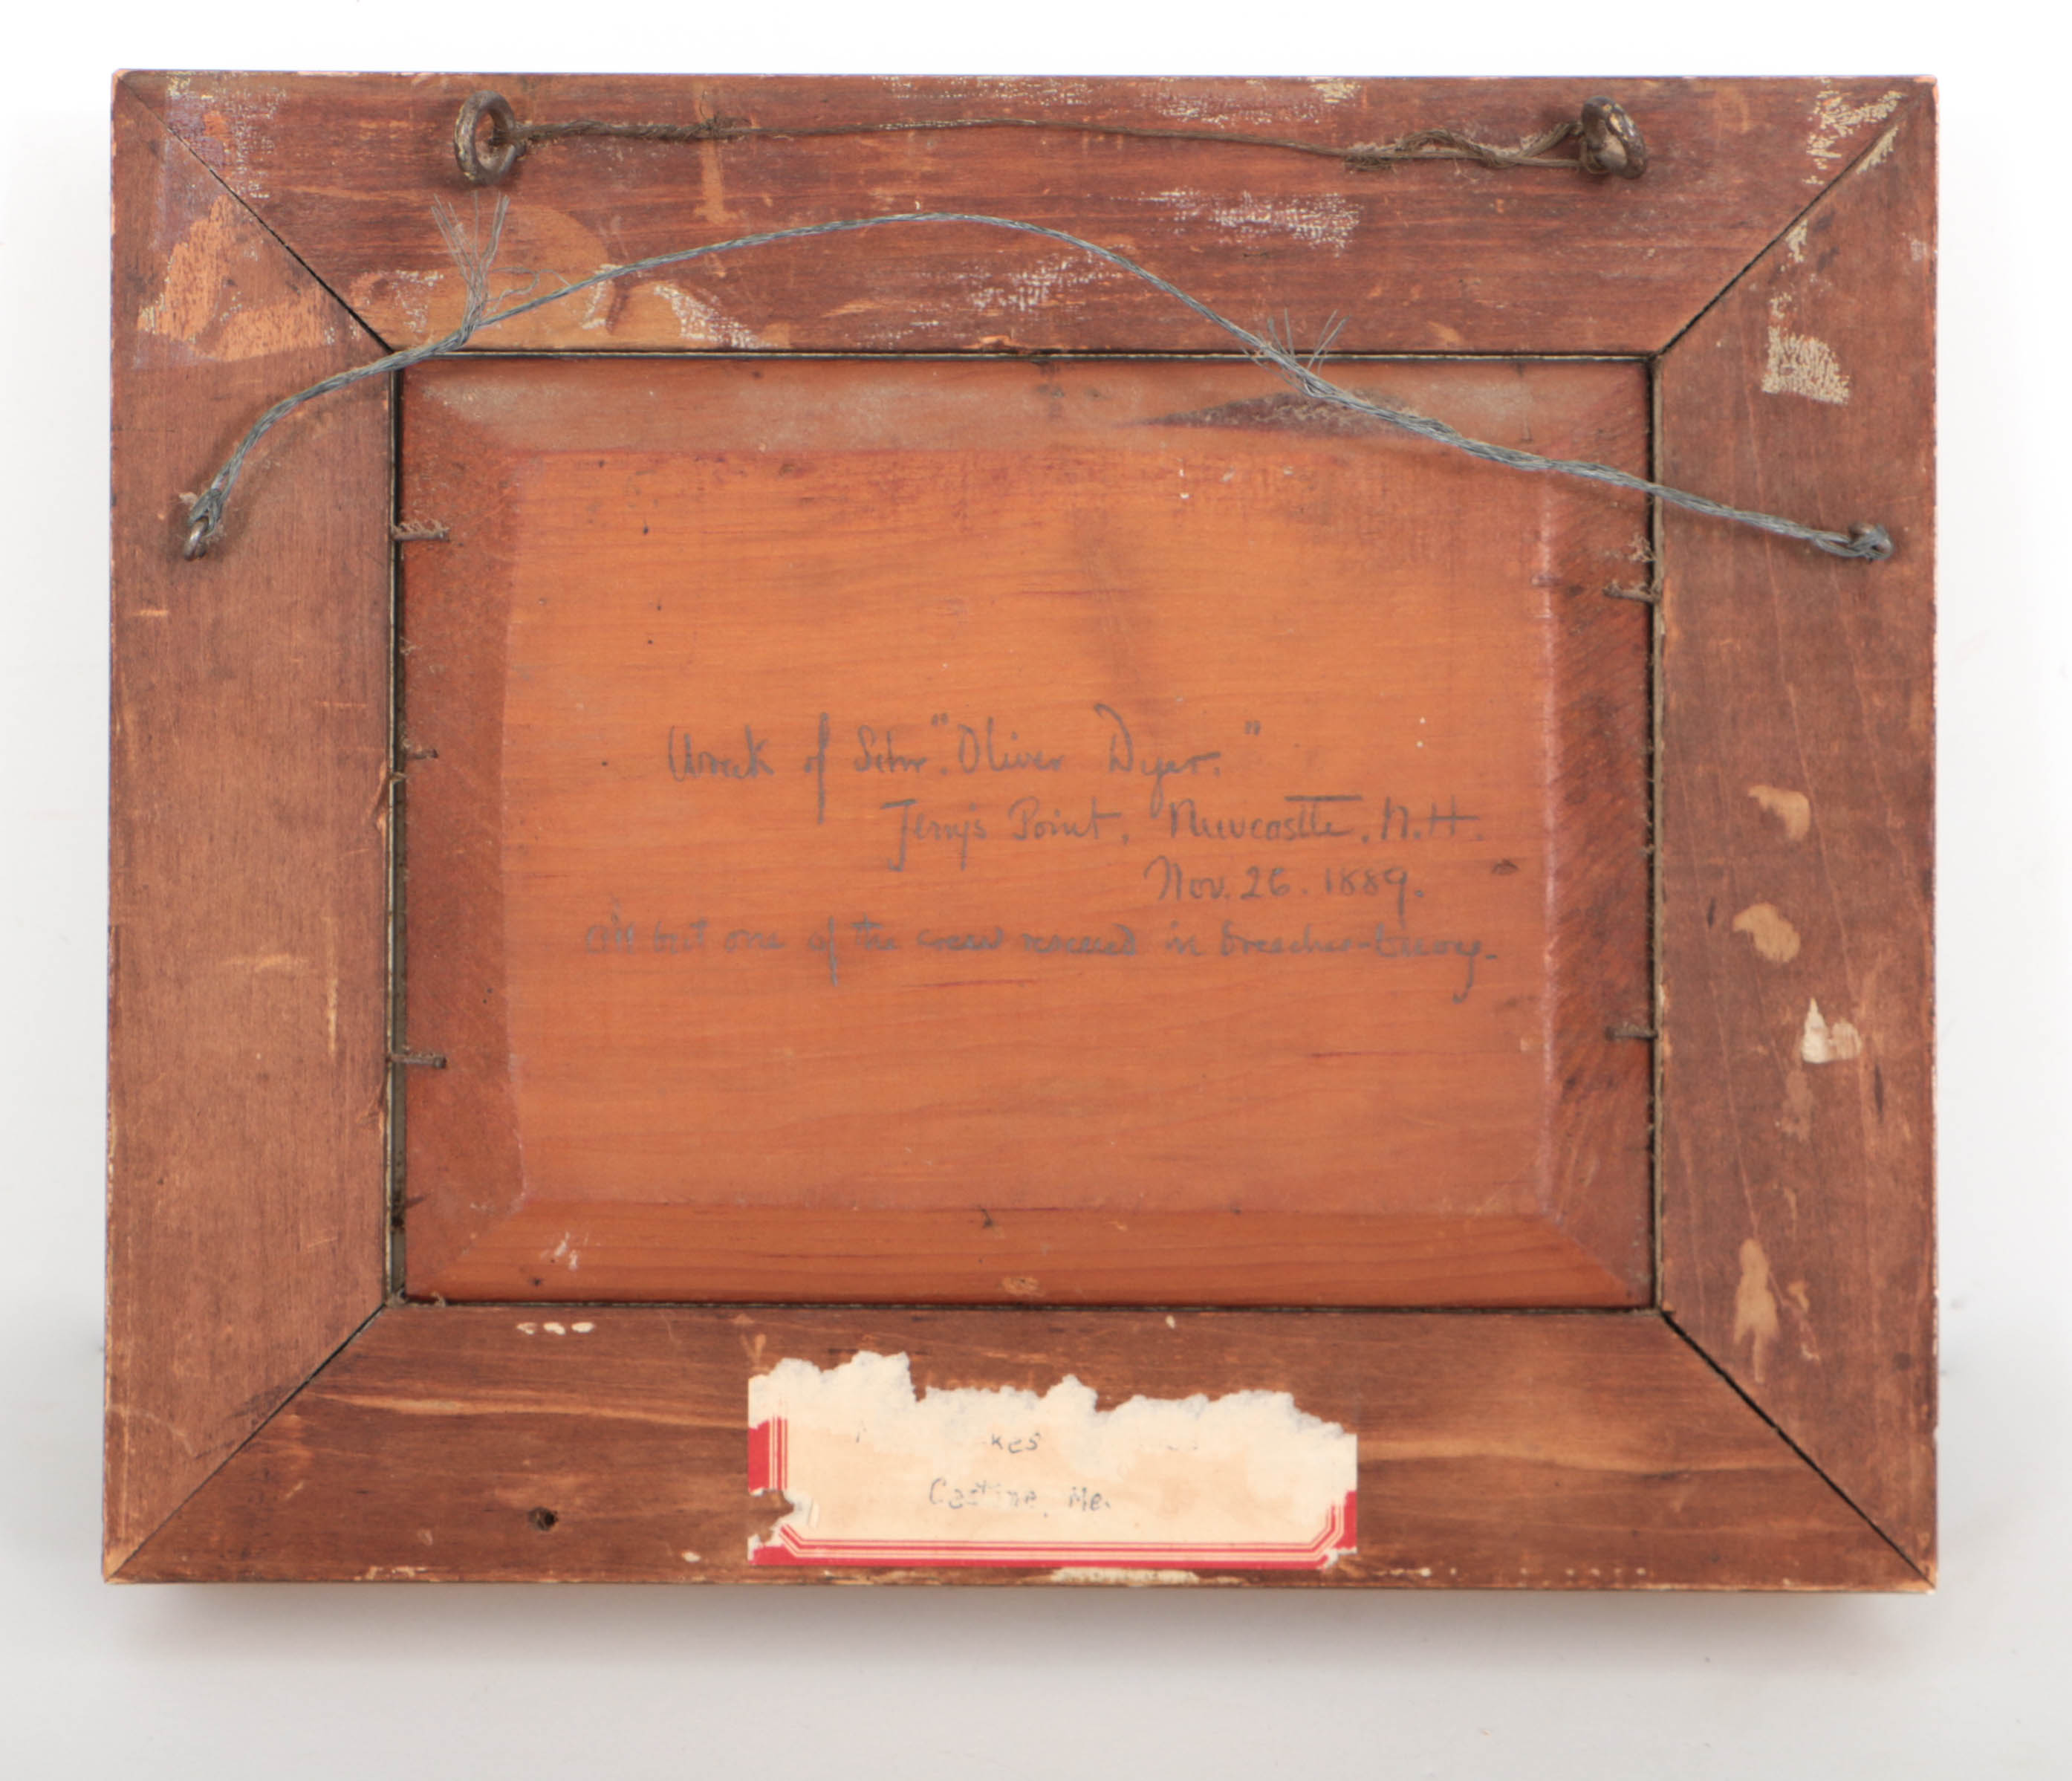 Wreck of Schr. "Oliver Dyer."
Jerry's Point, Newcastle, N.H.
Nov. 26. 1889.
All but one of the crew rescued in breeches-buoy-
kes
Castine, Me.